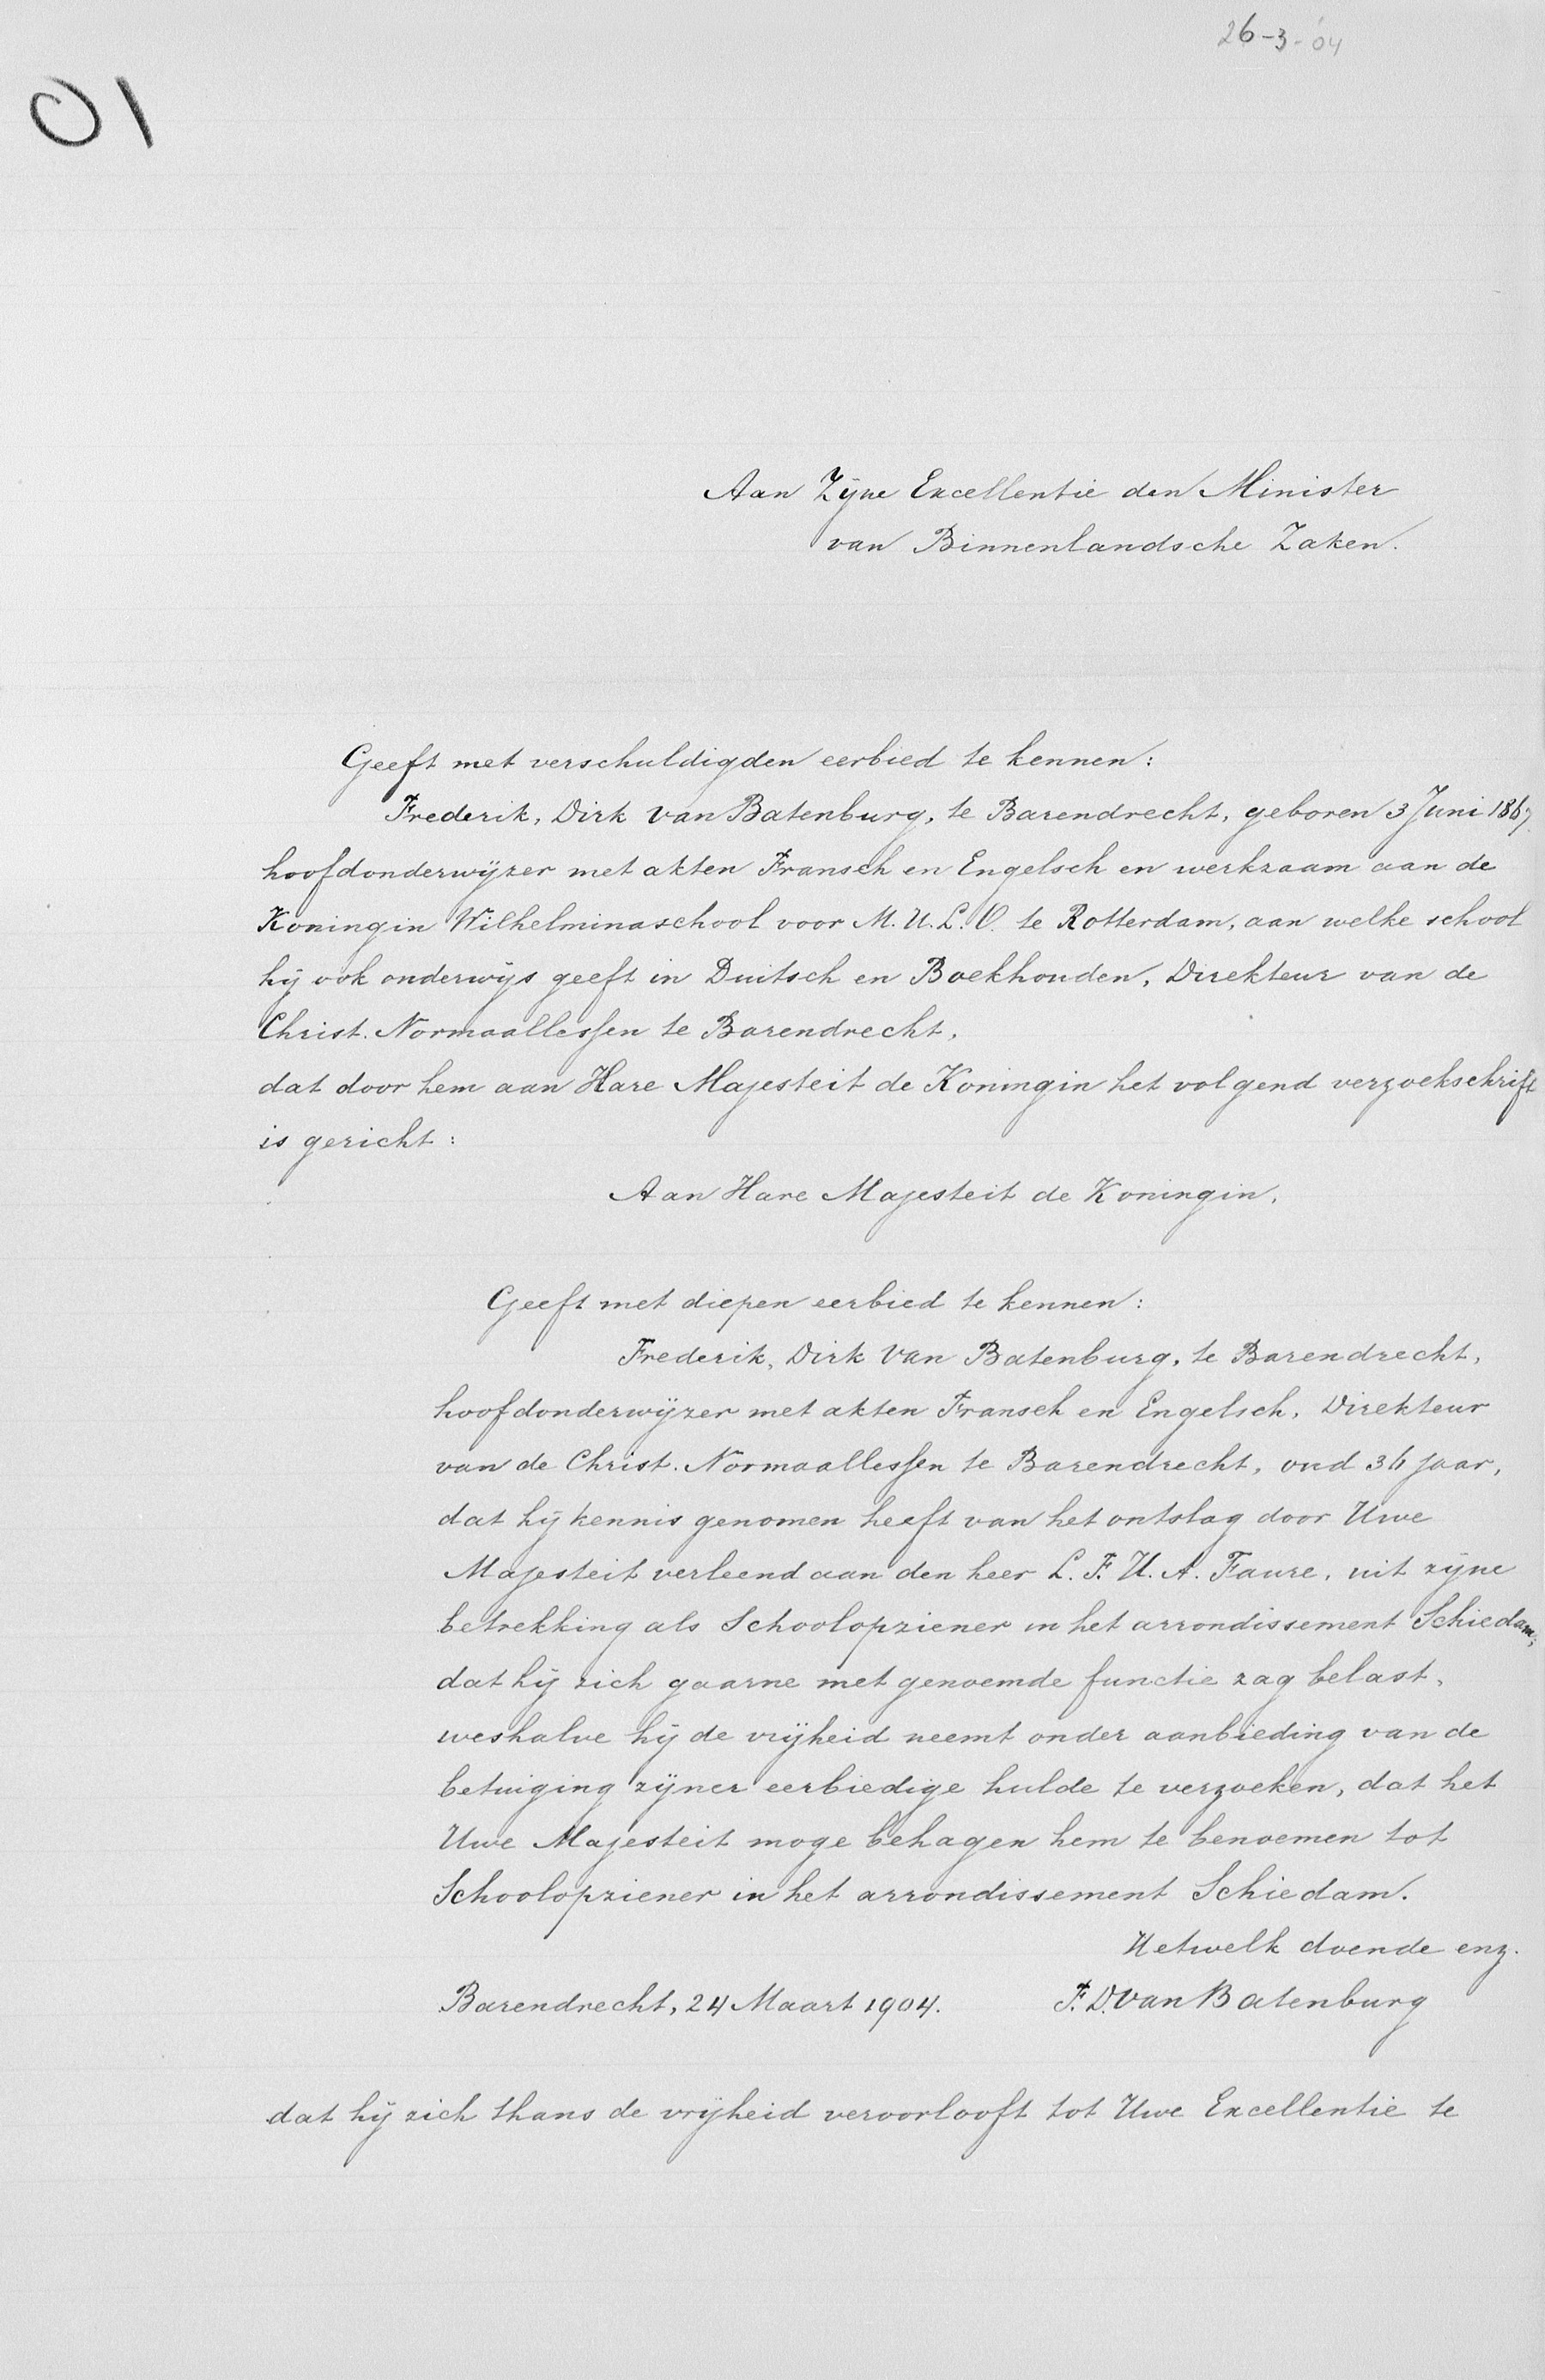 26-3-'04
01
Aan Zijne Excellentie den Minister
van Binnenlandsche Zaken.
Geeft met verschuldigden eerbied te kennen:
Frederik, Dirk van Batenburg, te Barendrecht, geboren 3 Juni 1867.
hoofdonderwijzer met akten Fransch en Engelsch en werkzaam aan de
Koningin Wilhelminaschool voor M.U.L.O. te Rotterdam, aan welke school
hij ook onderwijs geeft in Duitsch en Boekhouden, Direkteur van de
Christ. Normaallessen te Barendrecht,
dat door hem aan Hare Majesteit de Koningin het volgend verzoekschrift
is gericht:
Aan Hare Majesteit de Koningin,
Geeft met diepen eerbied te kennen:
Frederik, Dirk van Batenburg, te Barendrecht,
hoofdonderwijzer met akten Fransch en Engelsch, Direkteur
van de Christ. Normaallessen te Barendrecht, oud 36 jaar,
dat hij kennis genomen heeft van het ontslag door Uwe
Majesteit verleend aan den heer L.F.H.A. Faure, uit zijne
betrekking als Schoolopziener in het arrondissement Schiedam;
dat hij zich gaarne met genoemde functie zag belast,
weshalve hij de vrijheid neemt onder aanbieding van de
betuiging zijner eerbiedige hulde te verzoeken, dat het
Uwe Majesteit moge behagen hem te benoemen tot
Schoolopziener in het arrondissement Schiedam.
Hetwelk doende enz.
Barendrecht, 24 Maart 1904. F.D. van Batenburg
dat hij zich thans de vrijheid veroorlooft tot Uwe Excellentie te